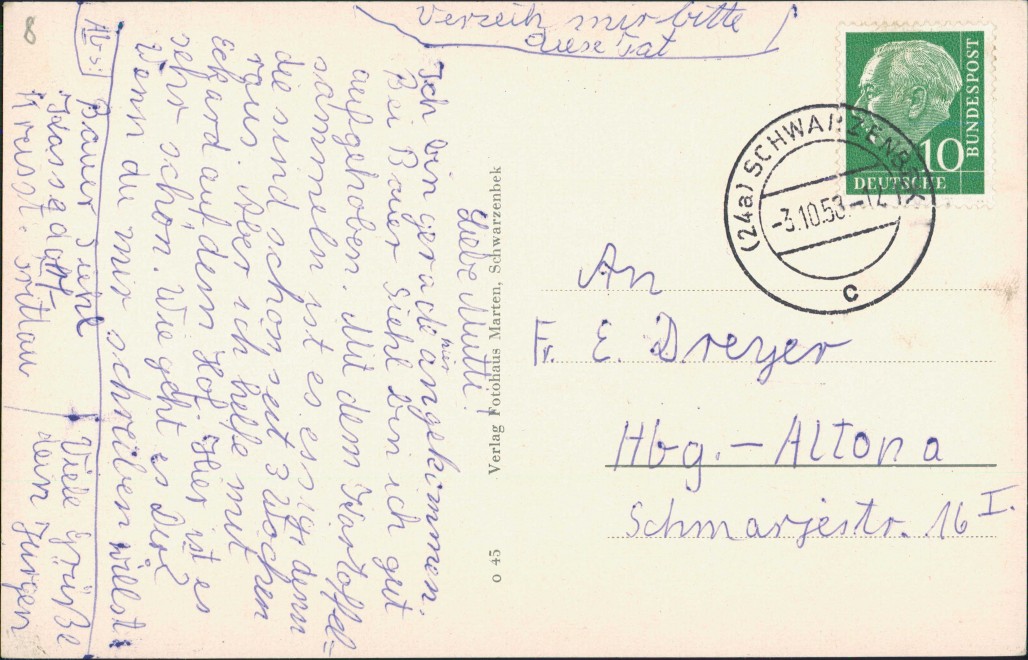 Verzeih mir bitte
diese Tat
Liebe Mutti!
Ich bin gerade hier angekommen.
Bei Bauer Siehl bin ich gut
aufgehoben. Mit dem Kartoffel=
sammeln ist es essig, denn
die sind schon seit 3 Wochen
raus. Aber ich helfe mit
Eckard auf dem Hof. Hier ist es
sehr schön. Wie geht es Dir?
Wenn du mir schreiben willst:
Viele Grüße
dein Jürgen
Abs:
Bauer Siehl
Kreis
Trittau
Verlag Fotohaus Marten, Schwarzenbek
o 45
An
Fr. E. Dreyer
Hbg. – Altona
Schmarjestr. 16 I.
DEUTSCHE
BUNDESPOST
10
(24a) SCHWARZENBEK
-3.10.53.-12
c
8